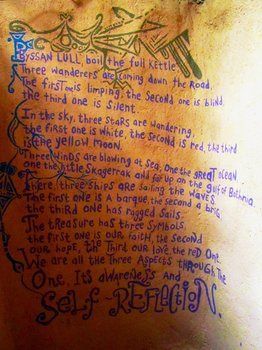 BYSSAN LULL, boil the full kettle
Three wanderers are coming down the Road
The first one is limping, the second one is blind,
the third one is Silent.
In the sky, three staRs are wandering,
the first one is white, the second is red, the third
is the yellow Moon.
Three winds are blowing at Sea, one the great ocean
One the little Skagerrak and far up on the gulf of Bothnia
There, three ships are sailing the waves
The first one is a barque, the second a brig
the third one has ragged sails.
The treasure has three symbols,
the first one is our faith, the second
our hope, the third our love, the red one
We are all the Three Aspects through the
One. Its awareness and
Self-Reflection.